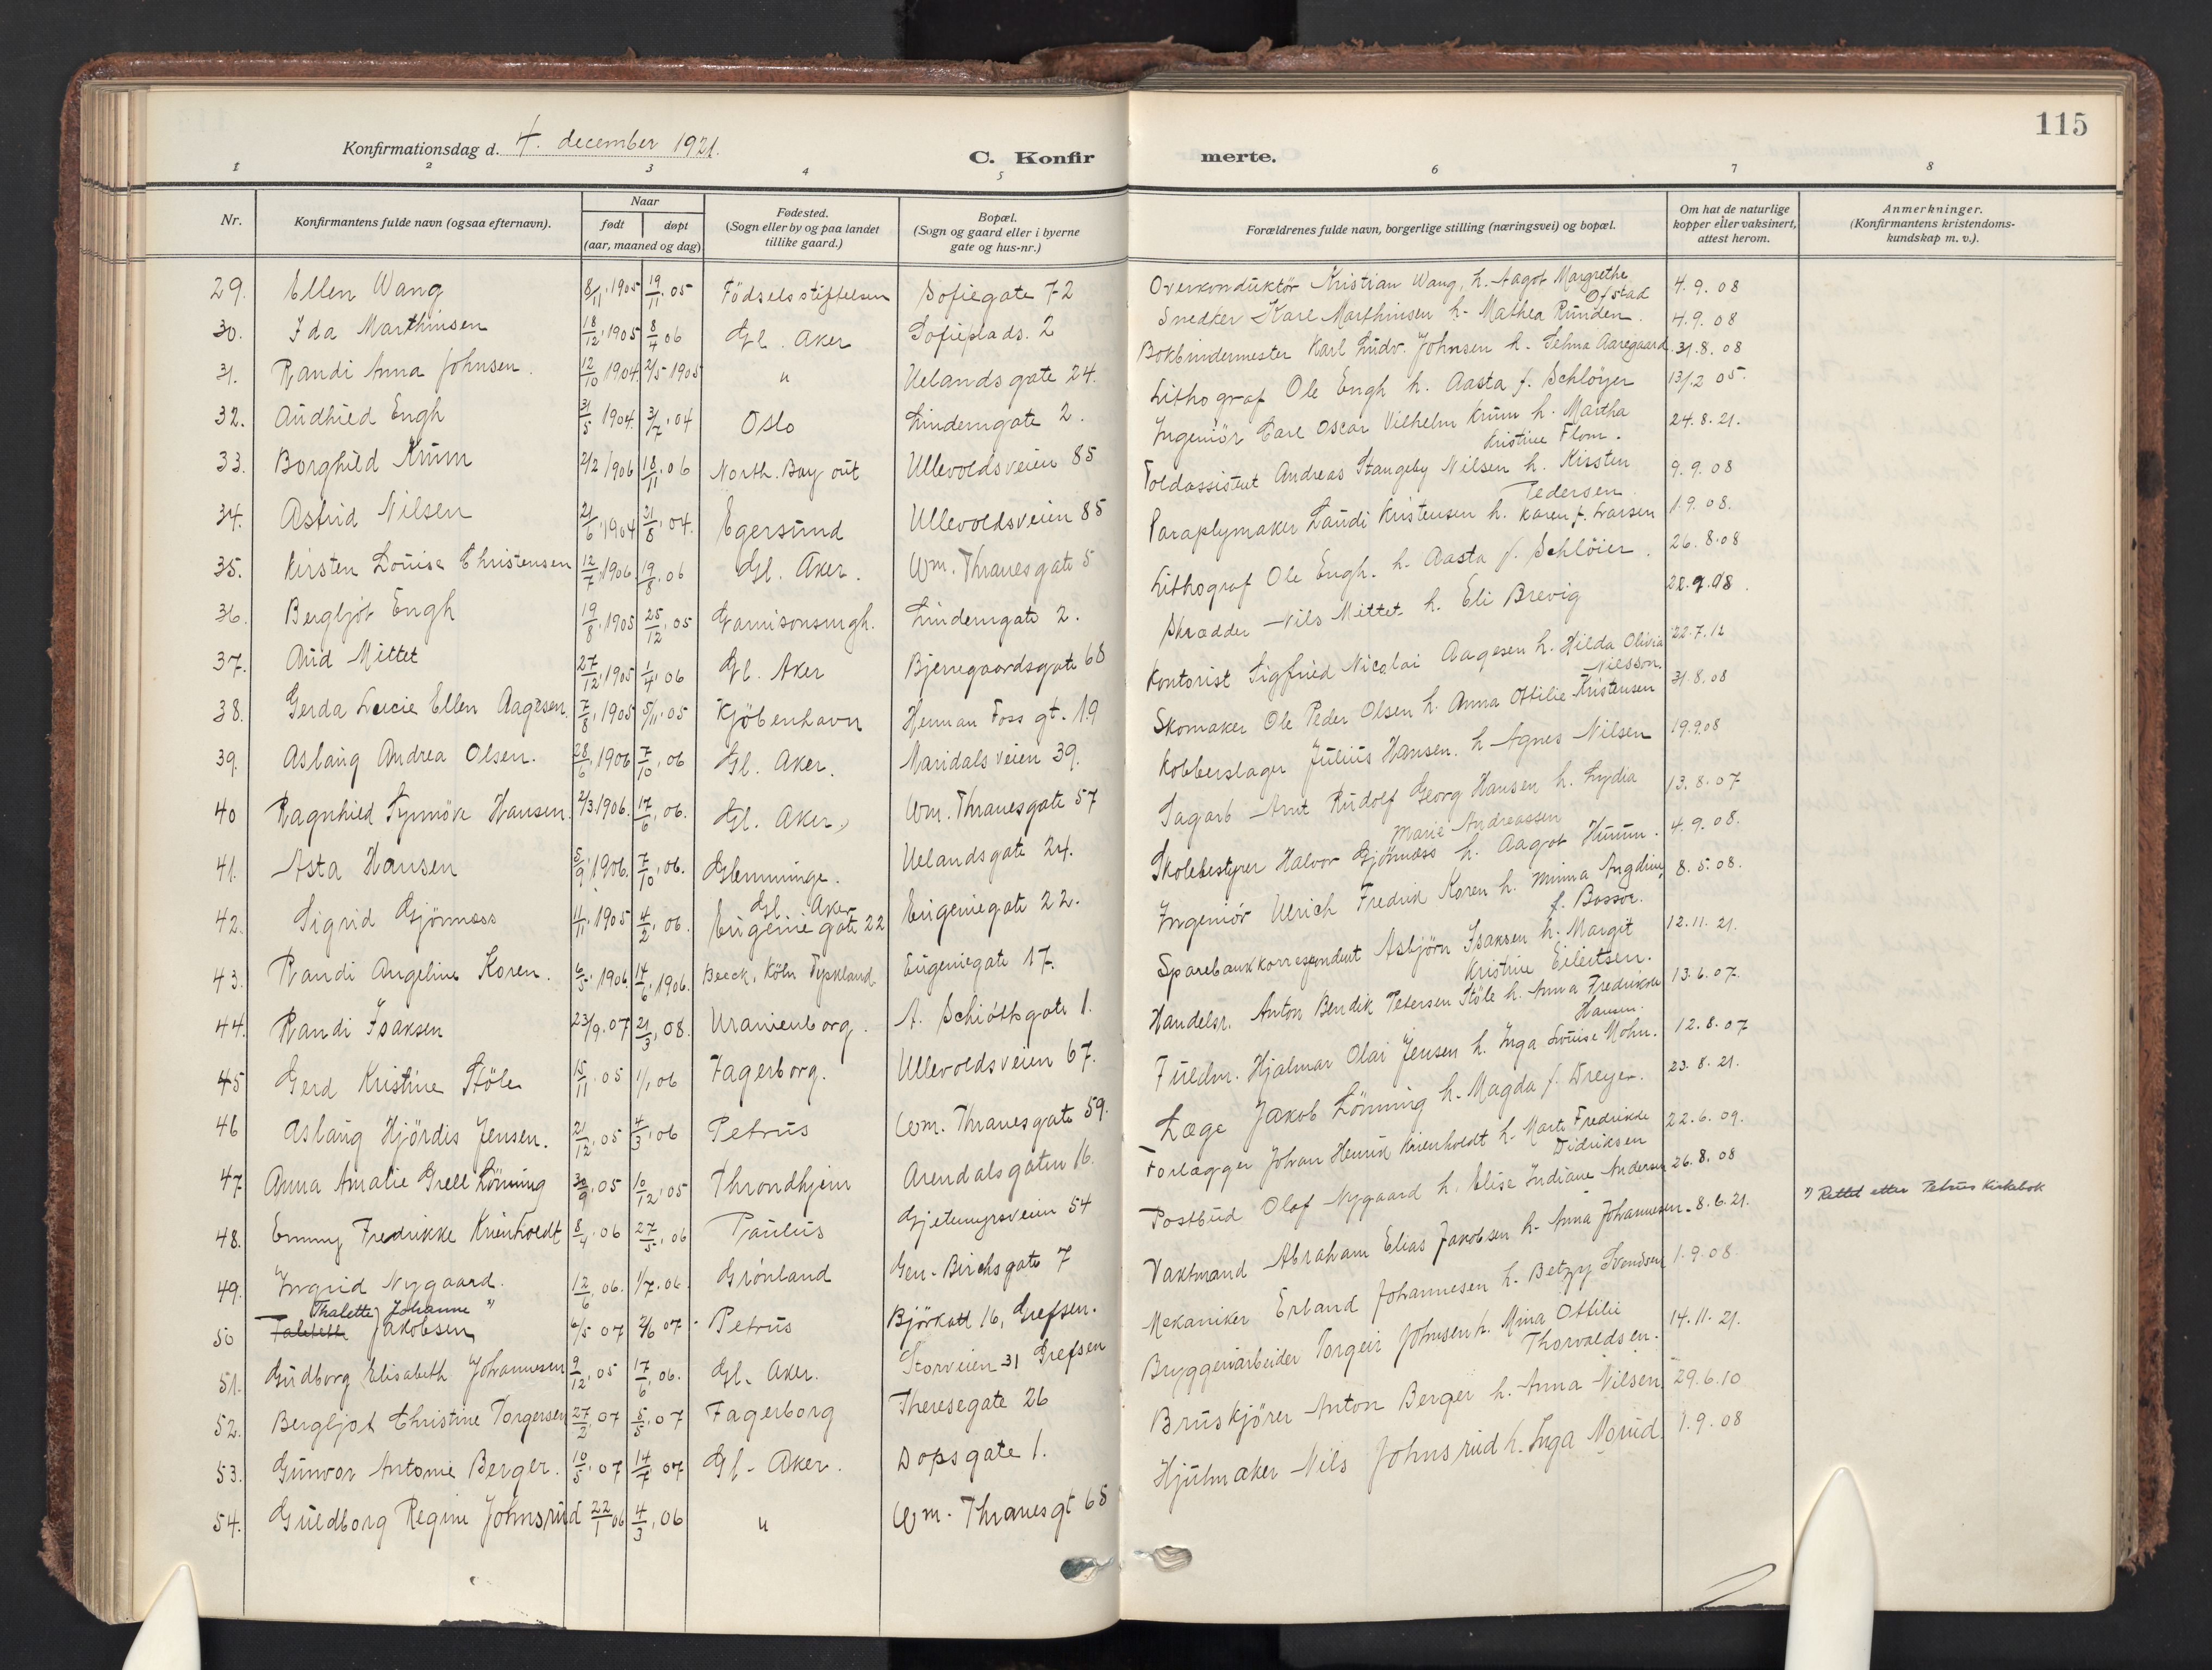 115
Konfirmationsdag d. 4. december 1921.
C. Konfir merte.
1 2 3 4 5 6 7 8
Nr.
Konfirmantens fulde navn (ogsaa efternavn).
Naar
født døpt
(aar, maaned og dag)
Fødested.
(Sogn eller by og paa landet
tillike gaard.)
Bopæl.
(Sogn og gaard eller i byerne
gate og hus-nr.)
Forældrenes fulde navn, borgerlige stilling (næringsvei) og bopæl.
Om hat de naturlige
kopper eller vaksinert,
attest herom.
Anmerkninger.
(Konfirmantens kristendoms-
kundskap m. v.).
29. Ellen Wang 8/11 1905 19/11 05 Födselsstiftelsen Sofiegate 72 Overkonduktör Kristian Wang, h. Aagot Margrethe Ofstad 4. 9. 08
30. Ida Marthinsen 18/12 1905 8/4 06 Gl. Aker Sofieplads. 2 Snedker Karl Marthinsen h. Mathea Runden. 4. 9. 08
31. Randi Anna Johnsen. 12/10 1904 2/5 1905 " Uelandsgate 24. Bokbindermester Karl Ludv. Johnsen h. Selma Aaregaard. 31. 8. 08
32. Audhild Engh 31/5 1904. 3/7 04 Oslo Lindemgate 2. Lithograf Ole Engh h. Aasta f. Schlöyer 13/12 05.
33. Borghild Krum 2/2 1906 18/11 06 North. Bay out Ullevoldsveien 85 Ingeniör Carl Oscar Vilhelm Krum h. Martha Kristine Flom. 24. 8. 21.
34. Astrid Nilsen 21/6 1904 31/8 04. Egersund Ullevoldsveien 85 Toldassistent Andreas Stangeby Nilsen h. Kirsten Pedersen 9. 9. 08
35. Kirsten Louise Christensen 12/7 1906 19/8 06 Gl. Aker. Wm. Thranesgate 5 Paraplymaker Laudi Kristensen h. Karen f. Larsen 1. 9. 08.
36. Bergljot Engh 19/8 1905 25/12 05 Garnisonsmgh. Lindemgate 2. Lithograf Ole Engh. h. Aasta f. Schlöier. 26. 8. 08
37. Aud Mittet 27/12 1905 1/4 06 Gl. Aker Bjerregaardsgate 68 Skrædder Nils Mittet h. Eli Brevig 28. 9. 08.
38. Gerda Lucie Ellen Aagesen. 7/8 1905 5/11 05 Kjöbenhavn Herman Foss gt. 19 Kontorist Sigfried Nicolai Aagesen h. Hilda Olivia Nilsson. 22. 7. 12
39. Aslaug Andrea Olsen. 28/6 1906 7/10 06 Gl. Aker. Maridalsveien 39. Skomaker Ole Peder Olsen h. Anna Ottilie Kristensen 31. 8. 08
40 Ragnhild Synnöve Hansen. 2/3 1906. 17/6 06. Gl. Aker, Wm. Thranesgate 57 Kobberslager Julius Hansen. h Agnes Nilsen 19. 9. 08
41. Asta Hansen 5/9 1906. 7/10 06. Glemminge. Uelandsgate 24. Sagarb Arnt Rudolf Georg Hansen h. Lydia Marie Andreassen 13. 8. 07
42. Sigrid Gjönnæss 4/11 1905 4/2 06. Gl. Aker Eugenie gate 22 Eugeniegate 22. Skolebestyrer Halvor Gjönnæss h. Aagot Humm. 4. 9. 08.
43. Randi Angeline Koren. 6/5 1906 14/6 1906. Beeck, Köln Tyskland Eugeniegate 17. Ingeniör Ulrich Fredrik Koren h. Minna Angeline f. Bassöe. 8. 5. 08.
44. Randi Isaksen 23/9. 07 21/3 08. Uranienborg. A. Schiöttsgate 1. Sparebankkorrespondent Asbjörn Isaksen h. Margit Kristine Eilertsen. 12. 11. 21.
45 Gerd Kristine Stöle 15/11 05 1/1 06 Fagerborg. Ullevoldsveien 67. Handelsr. Anton Bendik Petersen Stöle h. Anna Fredrikke Hansen. 13. 6. 07.
46 Aslaug Hjördis Jensen. 21/12 05 4/3 06 Petrus Wm. Thranesgate 59. Fuldm. Hjalmar Olai Jensen h. Inga Lovise Mohn. 12. 8. 07
47. Anna Amalie Grell Lönning 30/9 05 10/12 05 Throndhjem Arendalsgaten 16. Læge Jakob Lönning h. Magda f. Dreyer. 23. 8. 21.
48. Emmy Fredrikke Krienholdt 8/4 06 27/5 06 Paulus Gjetemyrsveien 54 Forlægger Johan Henrik Krienholdt h. Marte Fredrikke Didriksen 22. 6. 09.
49. Ingrid Nygaard. 12/6 06. 1/7. 06. Grönland Gen. Birchsgate 7 Postbud Olaf Nygaard h. Elise Indiane Andersen 26. 8. 08
50 Thalette Johanne *) Jakobsen 6/5 07 2/6 07 Petrus Björkatt 16, Grefsen. Vaktmand Abraham Elias Jakobsen h. Anna Johannesen. 8. 6. 21. *) Rettet etter Petrus Kirkebok
51. Gudborg Elisabeth Johannesen 9/12 05 17/6 06. Gl. Aker. Storveien 31 Grefsen Mekaniker Erland Johannesen h. Betzy Svendsen 1. 9. 08
52. Bergljot Christine Torgersen 27/2 07 5/5 07 Fagerborg Theresegate 26 Bryggeriarbeider Torgeir Johnsen h. Mina Ottilie Thorvaldsen. 14. 11. 21.
53. Gunvor Antonie Berger. 10/5 07 14/7 07 Gl. Aker. Dopsgate 1. Bruskjörer Anton Berger h. Anna Nilsen 29. 6. 10
54. Guldborg Regine Johnsrud 22/1 06 4/3, 06 " Wm. Thranesgt 65 Hjulmaker Nils Johnsrud h. Inga Norud. 1. 9. 08